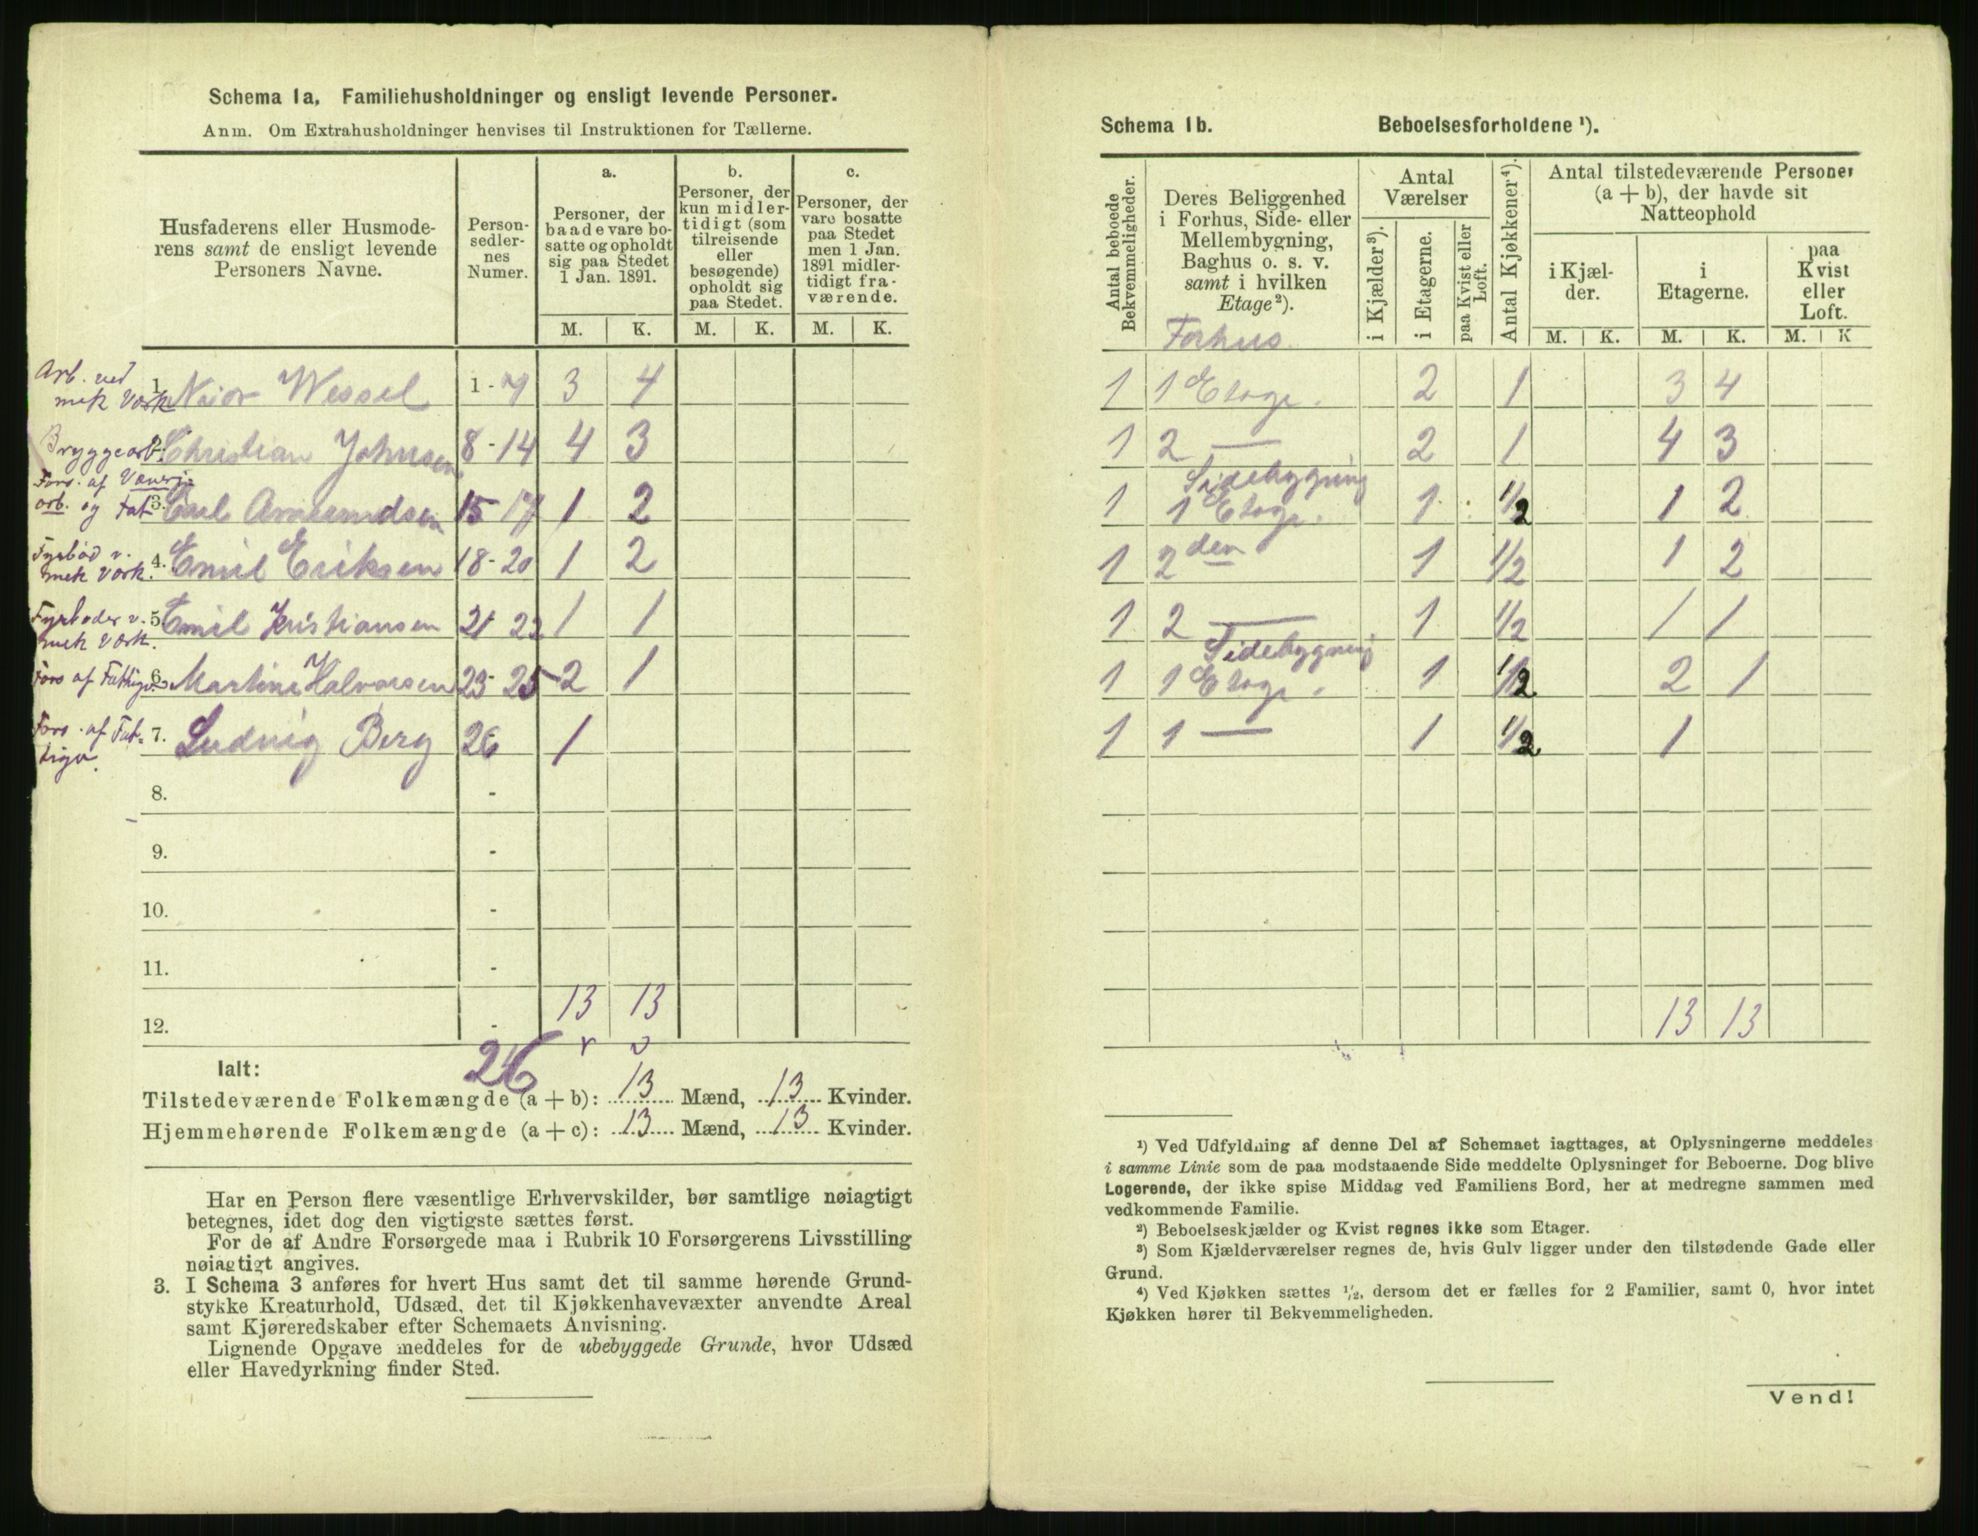 Schema 1a. Familiehusholdninger og ensligt levende Personer.
Anm. Om Extrahusholdninger henvises til Instruktionen for Tællerne.
Husfaderens eller Husmode-
rens samt de ensligt levende
Personers Navne.
Person-
sedler-
nes
Numer.
a.
Personer, der
baade vare bo-
satte og opholdt
sig paa Stedet
1 Jan. 1891.
b.
Personer, der
kun midler-
tidigt (som
tilreisende
eller
besøgende)
opholdt sig
paa Stedet.
c.
Personer, der
vare bosatte
paa Stedet
men 1 Jan.
1891 midler-
tidigt fra-
værende.
M. K. M. K. M. K.
Arb. ved
mek Værk
1. Wessel 1 - 7 3 4
Bryggearb. 2. Christian Johnsen 8 - 14 4 3
Fors. af
arb. og Fat 3. Carl Amundsen 15 - 17 1 2
Fyrbød v.
mek Værk. 4. Emil Eriksen 18 - 20 1 2
Fyrbøder v.
mek Værk. 5. Emil Kristiansen 21 22 1 1
Fors af Fattigv. 6. Martine Halvorsen 23 - 25 2 1
Fors. af Fat-
tigv. 7. Ludvig Berg 26 1
8. -
9. -
10. -
11. -
12. - 13 13
Ialt: 26
Tilstedeværende Folkemængde (a + b): 13 Mænd, 13 Kvinder.
Hjemmehørende Folkemængde (a + c): 13 Mænd, 13 Kvinder.
Har en Person flere væsentlige Erhvervskilder, bør samtlige nøiagtigt
betegnes, idet dog den vigtigste sættes først.
For de af Andre Forsørgede maa i Rubrik 10 Forsørgerens Livsstilling
nøiagtigt angives.
3. I Schema 3 anføres for hvert Hus samt det til samme hørende Grund-
stykke Kreaturhold, Udsæd, det til Kjøkkenhavevæxter anvendte Areal
samt Kjøreredskaber efter Schemaets Anvisning.
Lignende Opgave meddeles for de ubebyggede Grunde, hvor Udsæd
eller Havedyrkning finder Sted.
Schema 1b. Beboelsesforholdene ¹).
Antal beboede
Bekvemmeligheder.
Deres Beliggenhed
i Forhus, Side- eller
Mellembygning,
Baghus o. s. v.
samt i hvilken
Etage²).
Antal
Værelser
i Kjælder³).
i Etagerne.
paa Kvist eller
Loft.
Antal Kjøkkener⁴).
Antal tilstedeværende Personer
(a + b), der havde sit
Natteophold
i Kjæl-
der.
i
Etagerne.
paa
Kvist
eller
Loft.
M. K. M. K. M. K
Forhus
1 1 Etage. 2 1 3 4
1 2 — 2 1 4 3
Sidebygning
1 1 Etage. 1 1/2 1 2
1 2 den 1 1/2 1 2
1 2 — 1 1/2 1 1
Sidebygning
1 1 Etage. 1 1/2 2 1
1 1 — 1 1/2 1
13 13
¹) Ved Udfyldning af denne Del af Schemaet iagttages, at Oplysningerne meddeles
i samme Linie som de paa modstaaende Side meddelte Oplysninger for Beboerne. Dog blive
Logerende, der ikke spise Middag ved Familiens Bord, her at medregne sammen med
vedkommende Familie.
²) Beboelseskjælder og Kvist regnes ikke som Etager.
³) Som Kjælderværelser regnes de, hvis Gulv ligger under den tilstødende Gade eller
Grund.
⁴) Ved Kjøkken sættes ½, dersom det er fælles for 2 Familier, samt 0, hvor intet
Kjøkken hører til Bekvemmeligheden.
Vend!